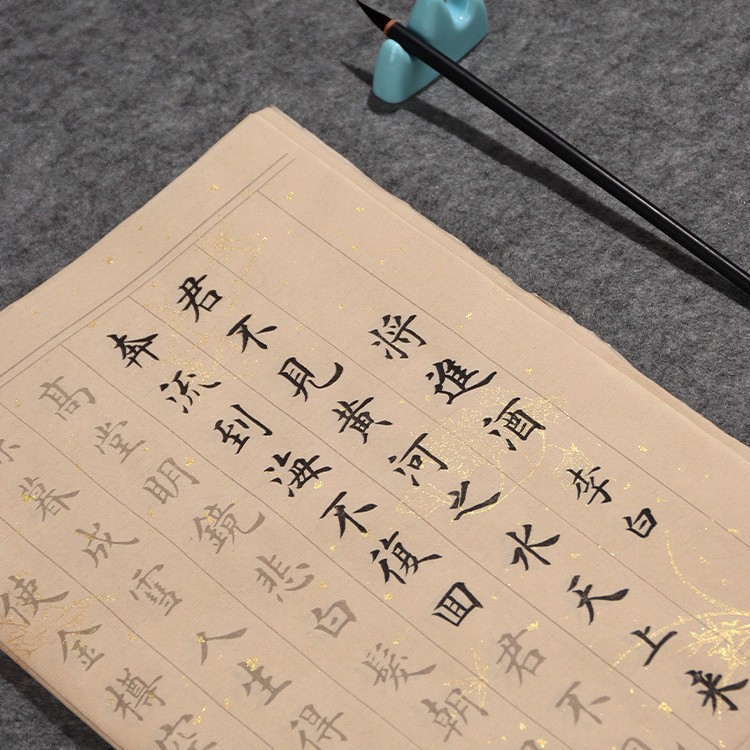 將進酒 李白
君不見黃河之水天上来
奔流到海不復囬 君不
高堂明鏡悲白髮朝
暮成雪人生得
使金樽空